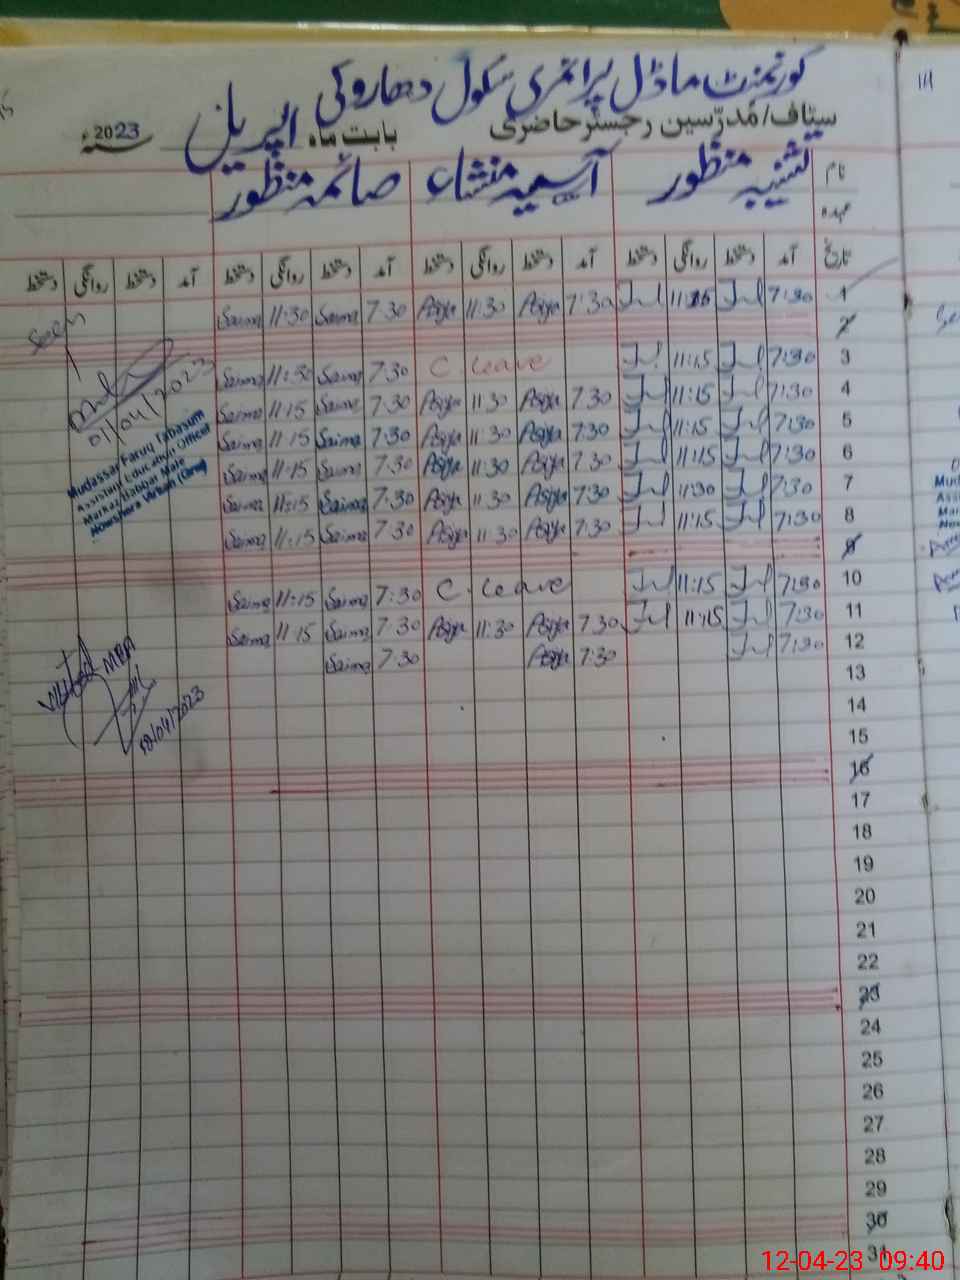 گورنمنٹ ماڈل پرائمری سکول دھاروکی
سٹاف/مُدرّسین رجسٹر حاضری بابت ماہ اپریل سنہ 2023ء
نام تشبیہ منظور آسیہ منشاء صائمہ منظور
عہدہ
تاریخ آمد دستخط روانگی دستخط آمد دستخط روانگی دستخط آمد دستخط روانگی دستخط آمد دستخط روانگی دستخط
1 7:30 11:15 7:30 Asiya 11:30 Asiya 7:30 Saima 11:30 Saima
2
3 7:30 11:15 C. Leave 7:30 Saima 11:30 Saima
4 7:30 11:15 7:30 Asiya 11:30 Asiya 7:30 Saima 11:15 Saima
5 7:30 11:15 7:30 Asiya 11:30 Asiya 7:30 Saima 11:15 Saima
6 7:30 11:15 7:30 Asiya 11:30 Asiya 7:30 Saima 11:15 Saima
7 7:30 11:30 7:30 Asiya 11:30 Asiya 7:30 Saima 11:15 Saima
8 7:30 11:15 7:30 Asiya 11:30 Asiya 7:30 Saima 11:15 Saima
9
10 7:30 11:15 C. Leave 7:30 Saima 11:15 Saima
11 7:30 11:15 7:30 Asiya 11:30 Asiya 7:30 Saima 11:15 Saima
12 7:30 7:30 Asiya 7:30 Saima
13
14
15
16
17
18
19
20
21
22
23
24
25
26
27
28
29
30
31
Seen
01/04/2023
Mudassar Faruq Tabasum
Assistant Education Officer
Markaz Babbar Male
Nowshera Virkan (Grw)
Visited MEA
12/04/2023
12-04-23 09:40